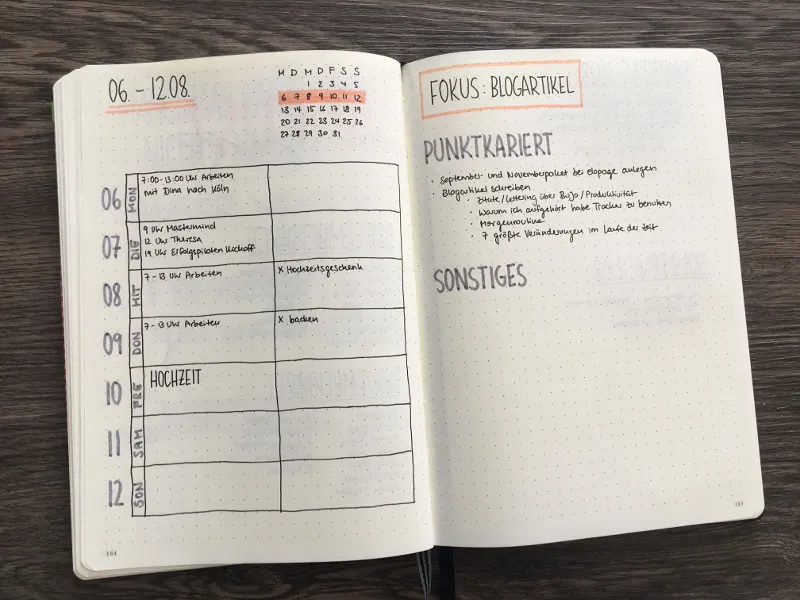 06. - 12.08.
M D M D F S S
1 2 3 4 5
6 7 8 9 10 11 12
13 14 15 16 17 18 19
20 21 22 23 24 25 26
27 28 29 30 31
06 MON
7:00-13:00 Uhr Arbeiten
mit Dina nach Köln
07 DIE
9 Uhr Mastermind
12 Uhr Theresa
19 Uhr Erfolgspiloten
08 MIT
7-13 Uhr Arbeiten
x Hochzeitsgeschenk
09 DON
7-13 Uhr Arbeiten
x backen
10 FRE
HOCHZEIT
11 SAM
12 SON
184
FOKUS: BLOGARTIKEL
PUNKTKARIERT
• September- und Novemberpaket bei elopage anlegen
• Blogartikel schreiben
• Zitate/Lettering über BuJo/Produktivität
• Warum ich aufgehört habe Tracker zu benutzen
• Morgenroutine
• 7 größte Veränderungen im Laufe der Zeit
SONSTIGES